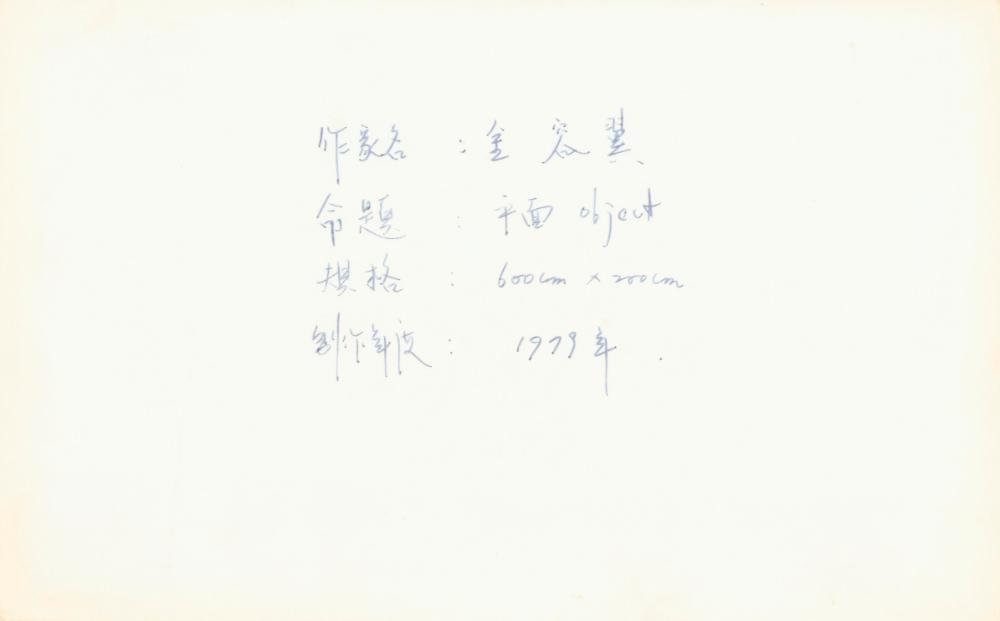 作家名 : 金 容翼
命題 : 平面 object
規格 : 600cm × 200cm
創作年度 : 1979年 .